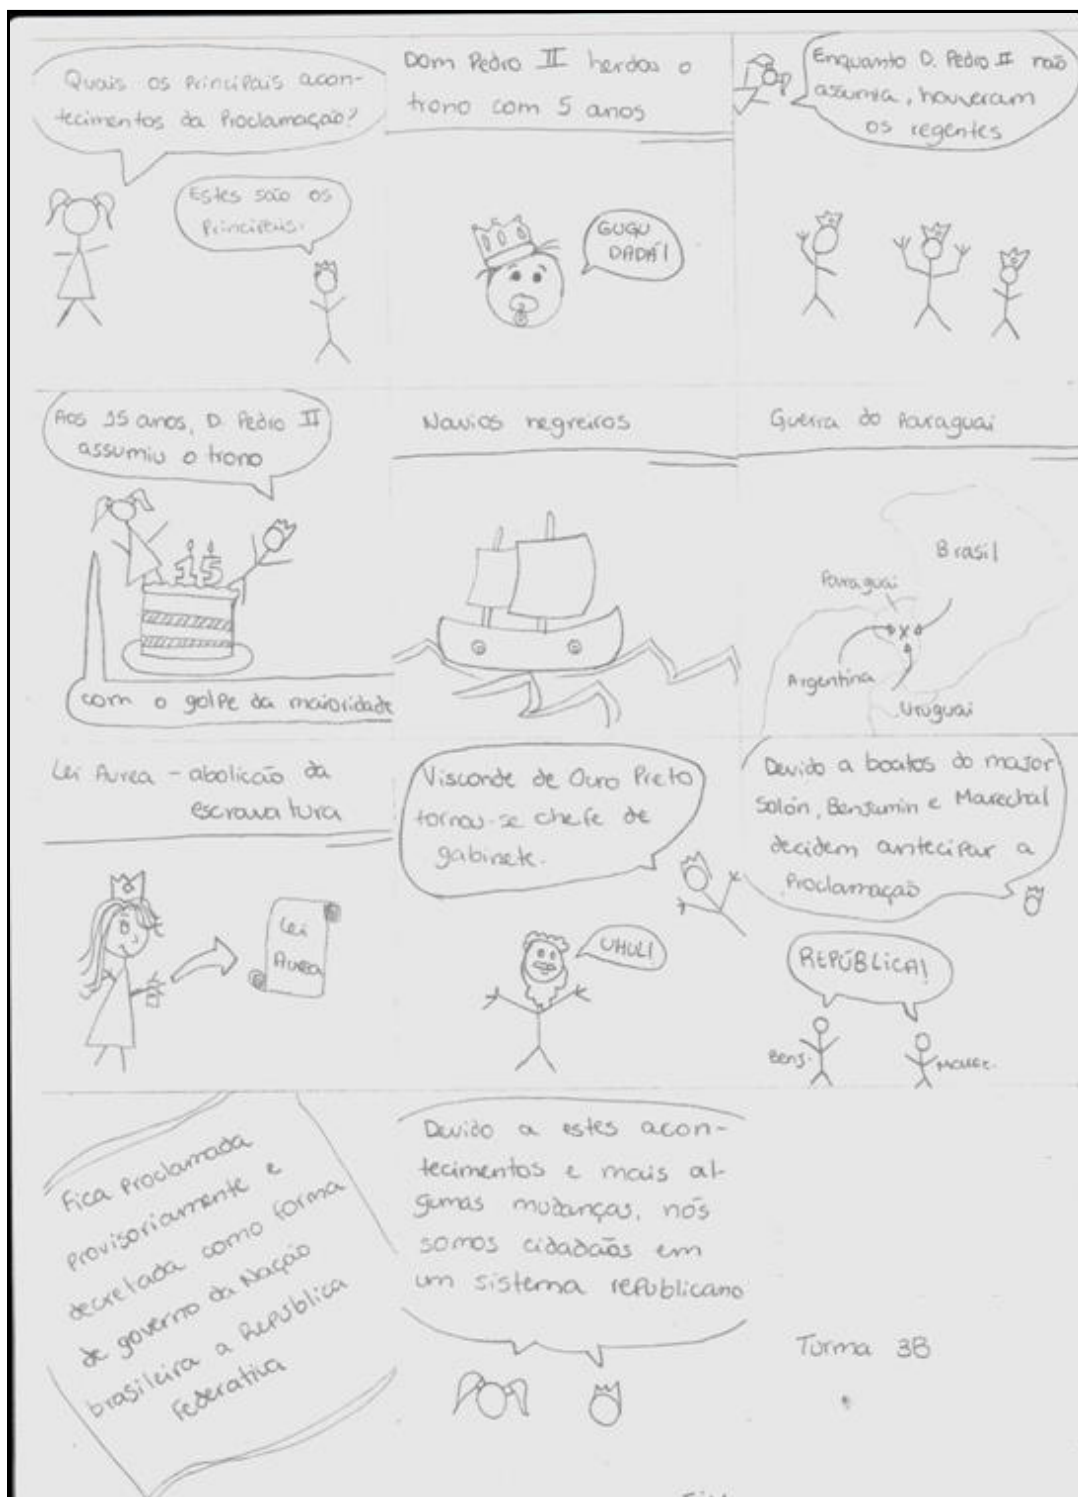 Quais os Principais acon-
tecimentos da Proclamação?
Estes são os
Principais.
Dom Pedro II herdou o
trono com 5 anos
GUGU
DADÁ!
Enquanto D. Pedro II não
assumia, houveram
os regentes
Aos 15 anos, D. Pedro II
assumiu o trono
15
com o golpe da maioridade
Navios negreiros
Guerra do Paraguai
Brasil
Paraguai
Argentina
Uruguai
Lei Aurea - abolição da
escravatura
Lei
Aurea
Visconde de Ouro Preto
tornou-se chefe de
gabinete.
UHUL!
Devido a boatos do major
Solón, Benjamin e Marechal
decidem antecipar a
Proclamação
REPÚBLICA!
Benj.
Marec.
Fica Proclamada
Provisoriamente e
decretada como forma
de governo da Nação
brasileira a República
Federativa
Devido a estes acon-
tecimentos e mais al-
gumas mudanças, nós
somos cidadãos em
um sistema republicano
Turma 3B